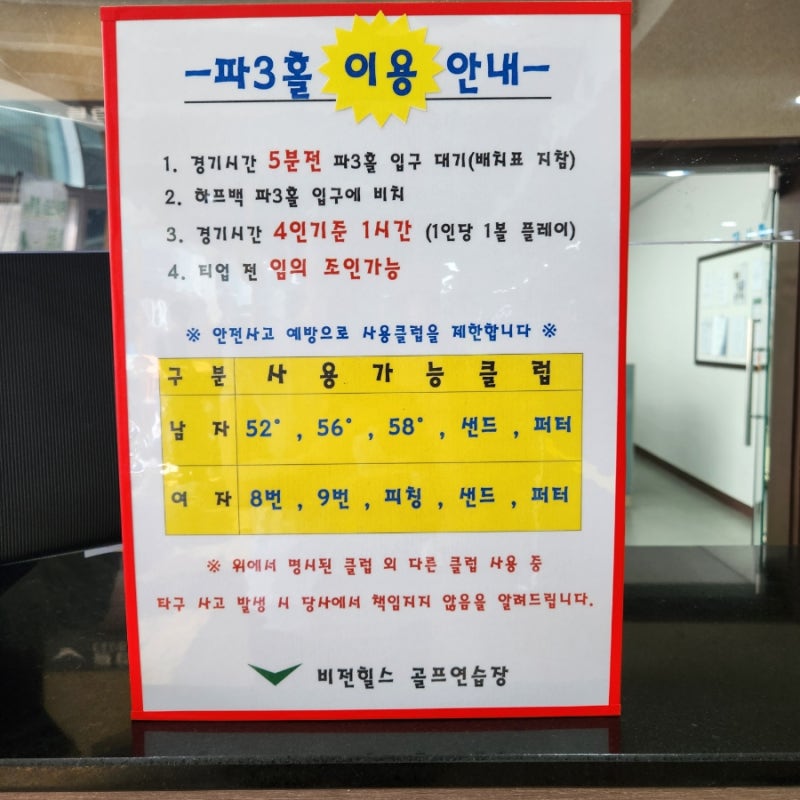 -파3홀 이용 안내-
1. 경기시간 5분전 파3홀 입구 대기(배치표 지참)
2. 하프백 파3홀 입구에 비치
3. 경기시간 4인기준 1시간 (1인당 1볼 플레이)
4. 티업 전 임의 조인가능
※ 안전사고 예방으로 사용클럽을 제한합니다 ※
구 분 사 용 가 능 클 럽
남 자 52° , 56° , 58° , 샌드 , 퍼터
여 자 8번 , 9번 , 피칭 , 샌드 , 퍼터
※ 위에서 명시된 클럽 외 다른 클럽 사용 중
타구 사고 발생 시 당사에서 책임지지 않음을 알려드립니다.
비전힐스 골프연습장